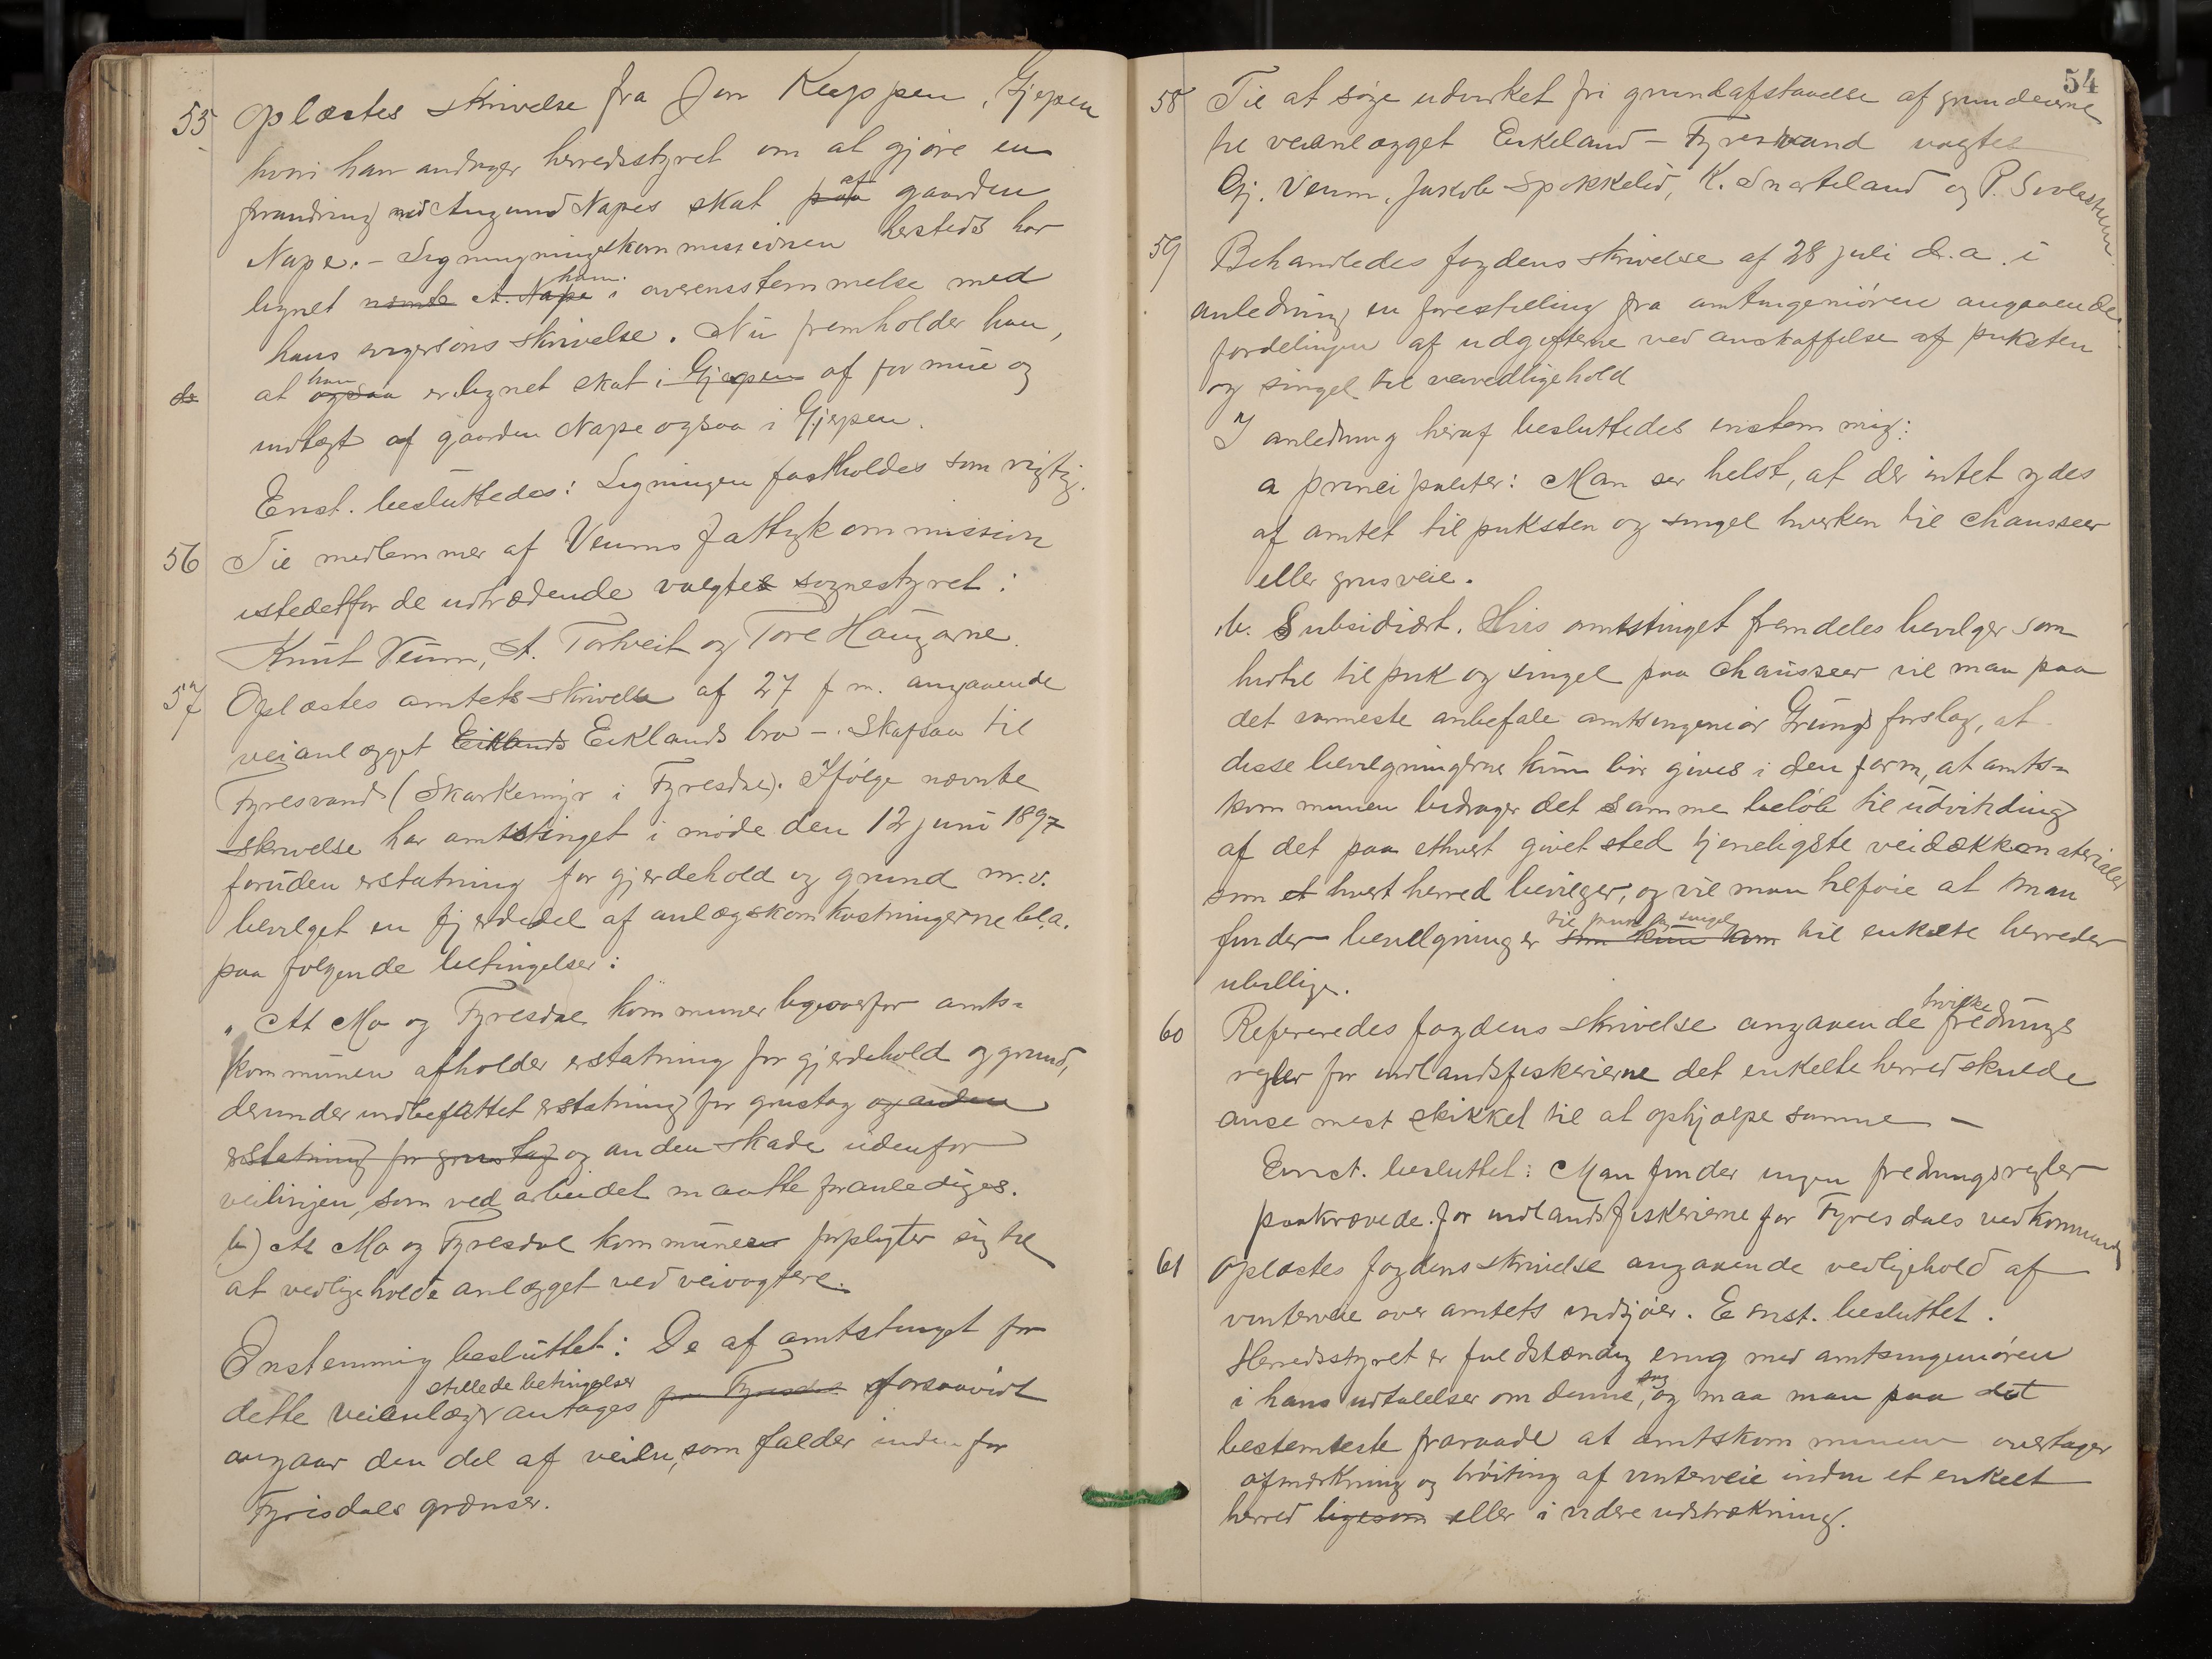 55 Oplæstes skrivelse fra Jon Kleppen, Gjerpen
hvori han andrager herredsstyret om at gjøre en
forandring med Augund Napes skat paa af gaarden
Nape. – Ligningskommissionen hersteds har
lignet nævnte A. Nape ham i overensstemmelse med
hans svigersøns skrivelse. Nu fremholder han,
at ogsaa han er lignet skat i Gjerpen af formue og
indtægt af gaarden Nape ogsaa i Gjerpen.
Enst. besluttedes: Ligningen fastholdes som rigtig.
56 Til medlemmer af Veums fattigkommission
istedetfor de udtrædende valgtes sognestyret:
Knut Veum, A. Tortveit og Tore Haugarne.
57 Oplæstes amtets skrivelse af 27 f. m. angaaende
veianlægget Eiklands Eiklands bro – Skafsaa til
Fyresvand (Skarkemyr i Fyresdal). Ifølge nævnte
skrivelse har amtstinget i møde den 12 juni 1897
foruden erstatning for gjerdehold og grund m.v.
bevilget en fjerdedel af anlægsomkostningerne bl.a.
paa følgende betingelser:
„At Mo og Fyresdal kommuner ligeoverfor amts=
kommunen afholder erstatning for gjerdehold og grund,
derunder indbefattet erstatning for grustag og anden
erstatning for grustag og anden skade udenfor
veilinjen, som ved arbeidet maatte foranlediges.
b) At Mo og Fyresdal kommuner forpligter sig til
at vedligeholde anlægget ved veivogtere.
Enstemmig besluttet: De af amtstinget for
dette veianlæg stillede betingelser antages for Fyresdal forsaavidt
angaar den del af veien, som falder inden for
Fyrisdals grænser.
54
58 Til at søge udvirket fri grundafstaaelse af grundeierne
til veianlægget Eikeland – Fyresvand valgtes
Gj. Veum, Jakob Spokkelid, K. Snarteland og P.
59 Behandledes fogdens skrivelse af 28 juli d. a. i
anledning en forestilling fra amtsingeniøren angaaende
fordelingen af udgifterne ved anskaffelse af puksten
og singel til veivedligehold
I anledning heraf besluttedes enstemmig:
a principaliter: Man ser helst, at der intet ydes
af amtet til puksten og singel hverken til chausseer
eller grusveie.
b. Subsidiært. Hvis amtstinget fremdeles bevilger som
hidtil til puk og singel paa chausseer vil man paa
det varmeste anbefale amtsingeniør Grungs forslag, at
disse bevilgningerne kun bør gives i den form, at amts=
kommunen bidrager det samme beløb til udvikling
af det paa ethvert givet sted tjenligste veidækkematerialer
som et hvert herred bevilger, og vil man tilføie at man
finder bevilgninger som kun kom til puk og singel til enkelte herreder
ubillige.
60 Refereredes fogdens skrivelse angaaende hvilke frednings
regler for indlandsfiskerierne det enkelte herred skulde
anse mest skikket til at ophjælpe samme –
Enst. besluttet: Man finder ingen fredningsregler
paakrævede for indlandsfiskerierne for Fyresdals vedkommende
61 Oplæstes fogdens skrivelse angaaende vedligehold af
vinterveie over amtets indsjøer. E enst. besluttet.
Herredsstyret er fuldstændig enig med amtsingeniøren
i hans udtalelser om denne sag, og maa man paa det
bestemteste fraraade at amtskommunen overtager
afmerkning og brøiting af vinterveie inden et enkelt
herred ligesom eller i videre udstrækning.